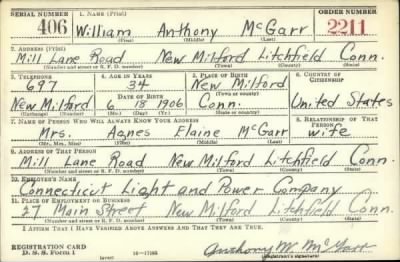 SERIAL NUMBER 1. NAME (Print) ORDER NUMBER
406 William Anthony McGarr 2211
(First) (Middle) (Last)
2. ADDRESS (Print)
Mill Lane Road New Milford Litchfield Conn.
(Number and street or R. F. D. number) (Town) (County) (State)
3. TELEPHONE 4. AGE IN YEARS 5. PLACE OF BIRTH 6. COUNTRY OF CITIZENSHIP
697 34 New Milford
DATE OF BIRTH (Town or county)
New Milford 6 18 1906 Conn. United States
(Exchange) (Number) (Mo.) (Day) (Yr.) (State or country)
7. NAME OF PERSON WHO WILL ALWAYS KNOW YOUR ADDRESS 8. RELATIONSHIP OF THAT PERSON
Mrs. Agnes Elaine McGarr wife
(Mr., Mrs., Miss) (First) (Middle) (Last)
9. ADDRESS OF THAT PERSON
Mill Lane Road New Milford Litchfield Conn.
(Number and street or R. F. D. number) (Town) (County) (State)
10. EMPLOYER'S NAME
Connecticut Light and Power Company
11. PLACE OF EMPLOYMENT OR BUSINESS
27 Main Street New Milford Litchfield Conn.
(Number and street or R. F. D. number) (Town) (County) (State)
I AFFIRM THAT I HAVE VERIFIED ABOVE ANSWERS AND THAT THEY ARE TRUE.
REGISTRATION CARD
D. S. S. Form 1 16—17105 Anthony W. McGarr
(over) (Registrant's signature)